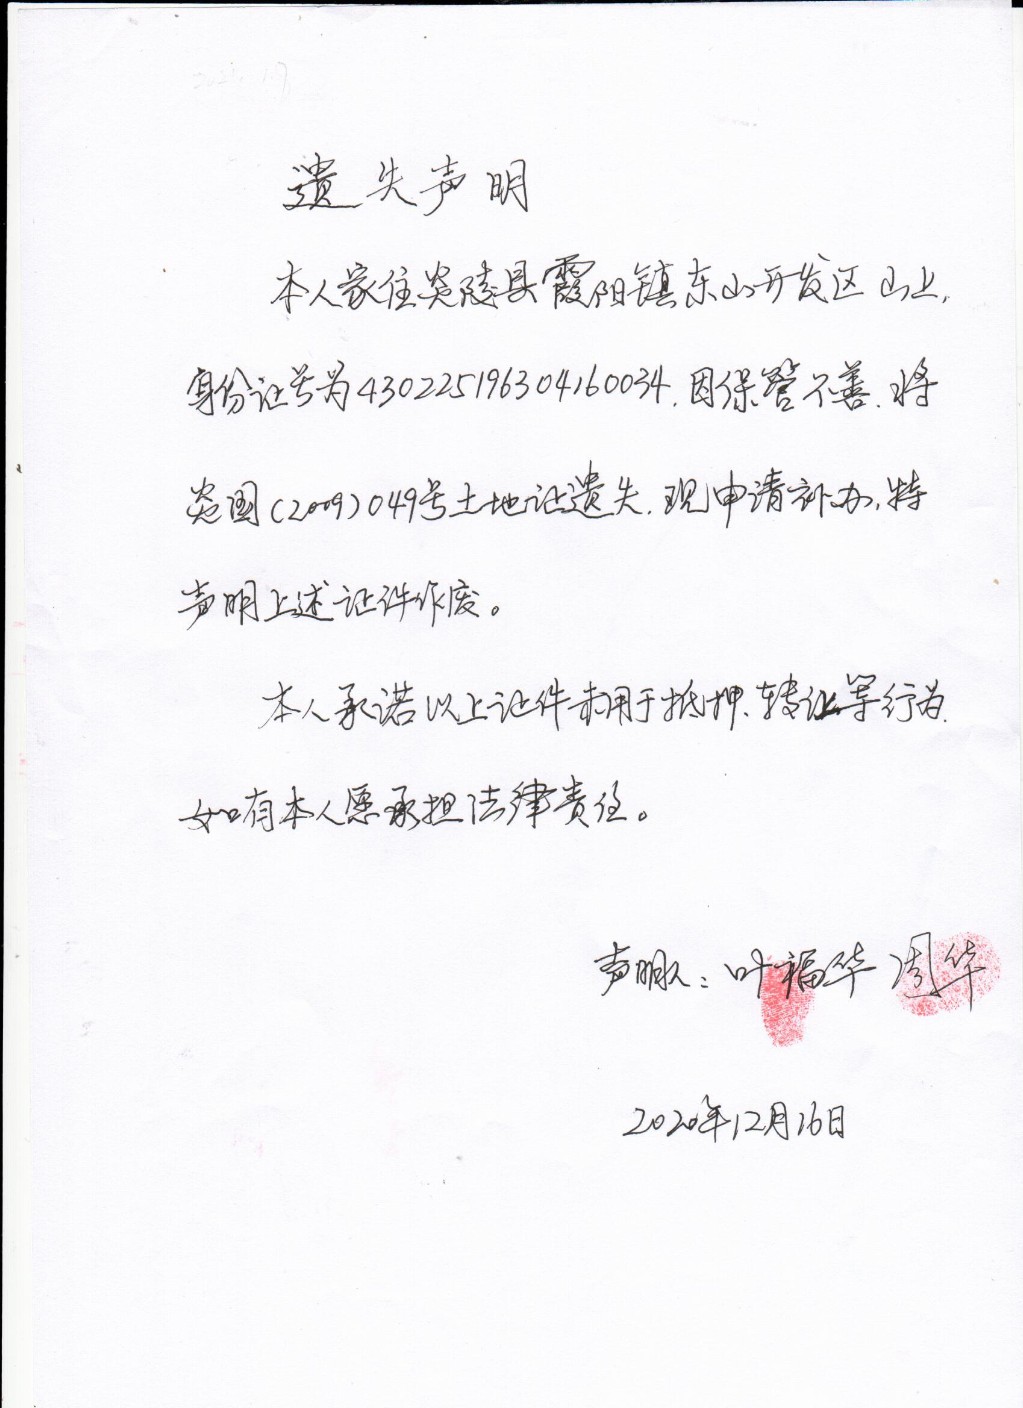 遗失声明
本人家住炎陵县霞阳镇东山开发区山上,
身份证号为430225196304160034.因保管不善、将
炎国(2009)049号土地证遗失.现申请补办,特
声明上述证件作废。
本人承诺以上证件未用于抵押、转让等行为.
如有本人愿承担法律责任。
声明人:叶福华 周华
2020年12月16日